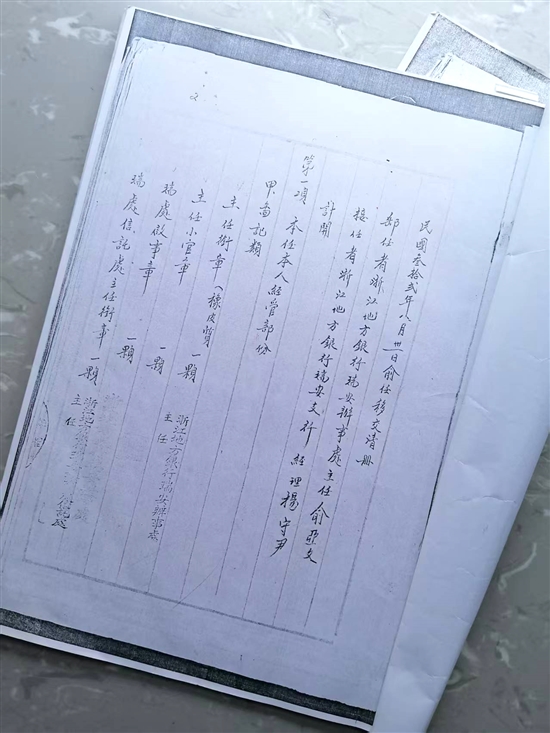 民國叁拾貳年八月卅一日俞任移交清冊
卸任者浙江地方銀行瑞安辦事處主任俞亞文
接任者浙江地方銀行瑞安支行經理楊守尹
計開
第一項 本任本人經管部份
甲、圖記類
主任銜章（橡皮質） 一顆 浙江地方銀行瑞安辦事處主任
主任小官章 一顆
瑞處啟事章 一顆
瑞處信託處主任銜章 一顆 主任